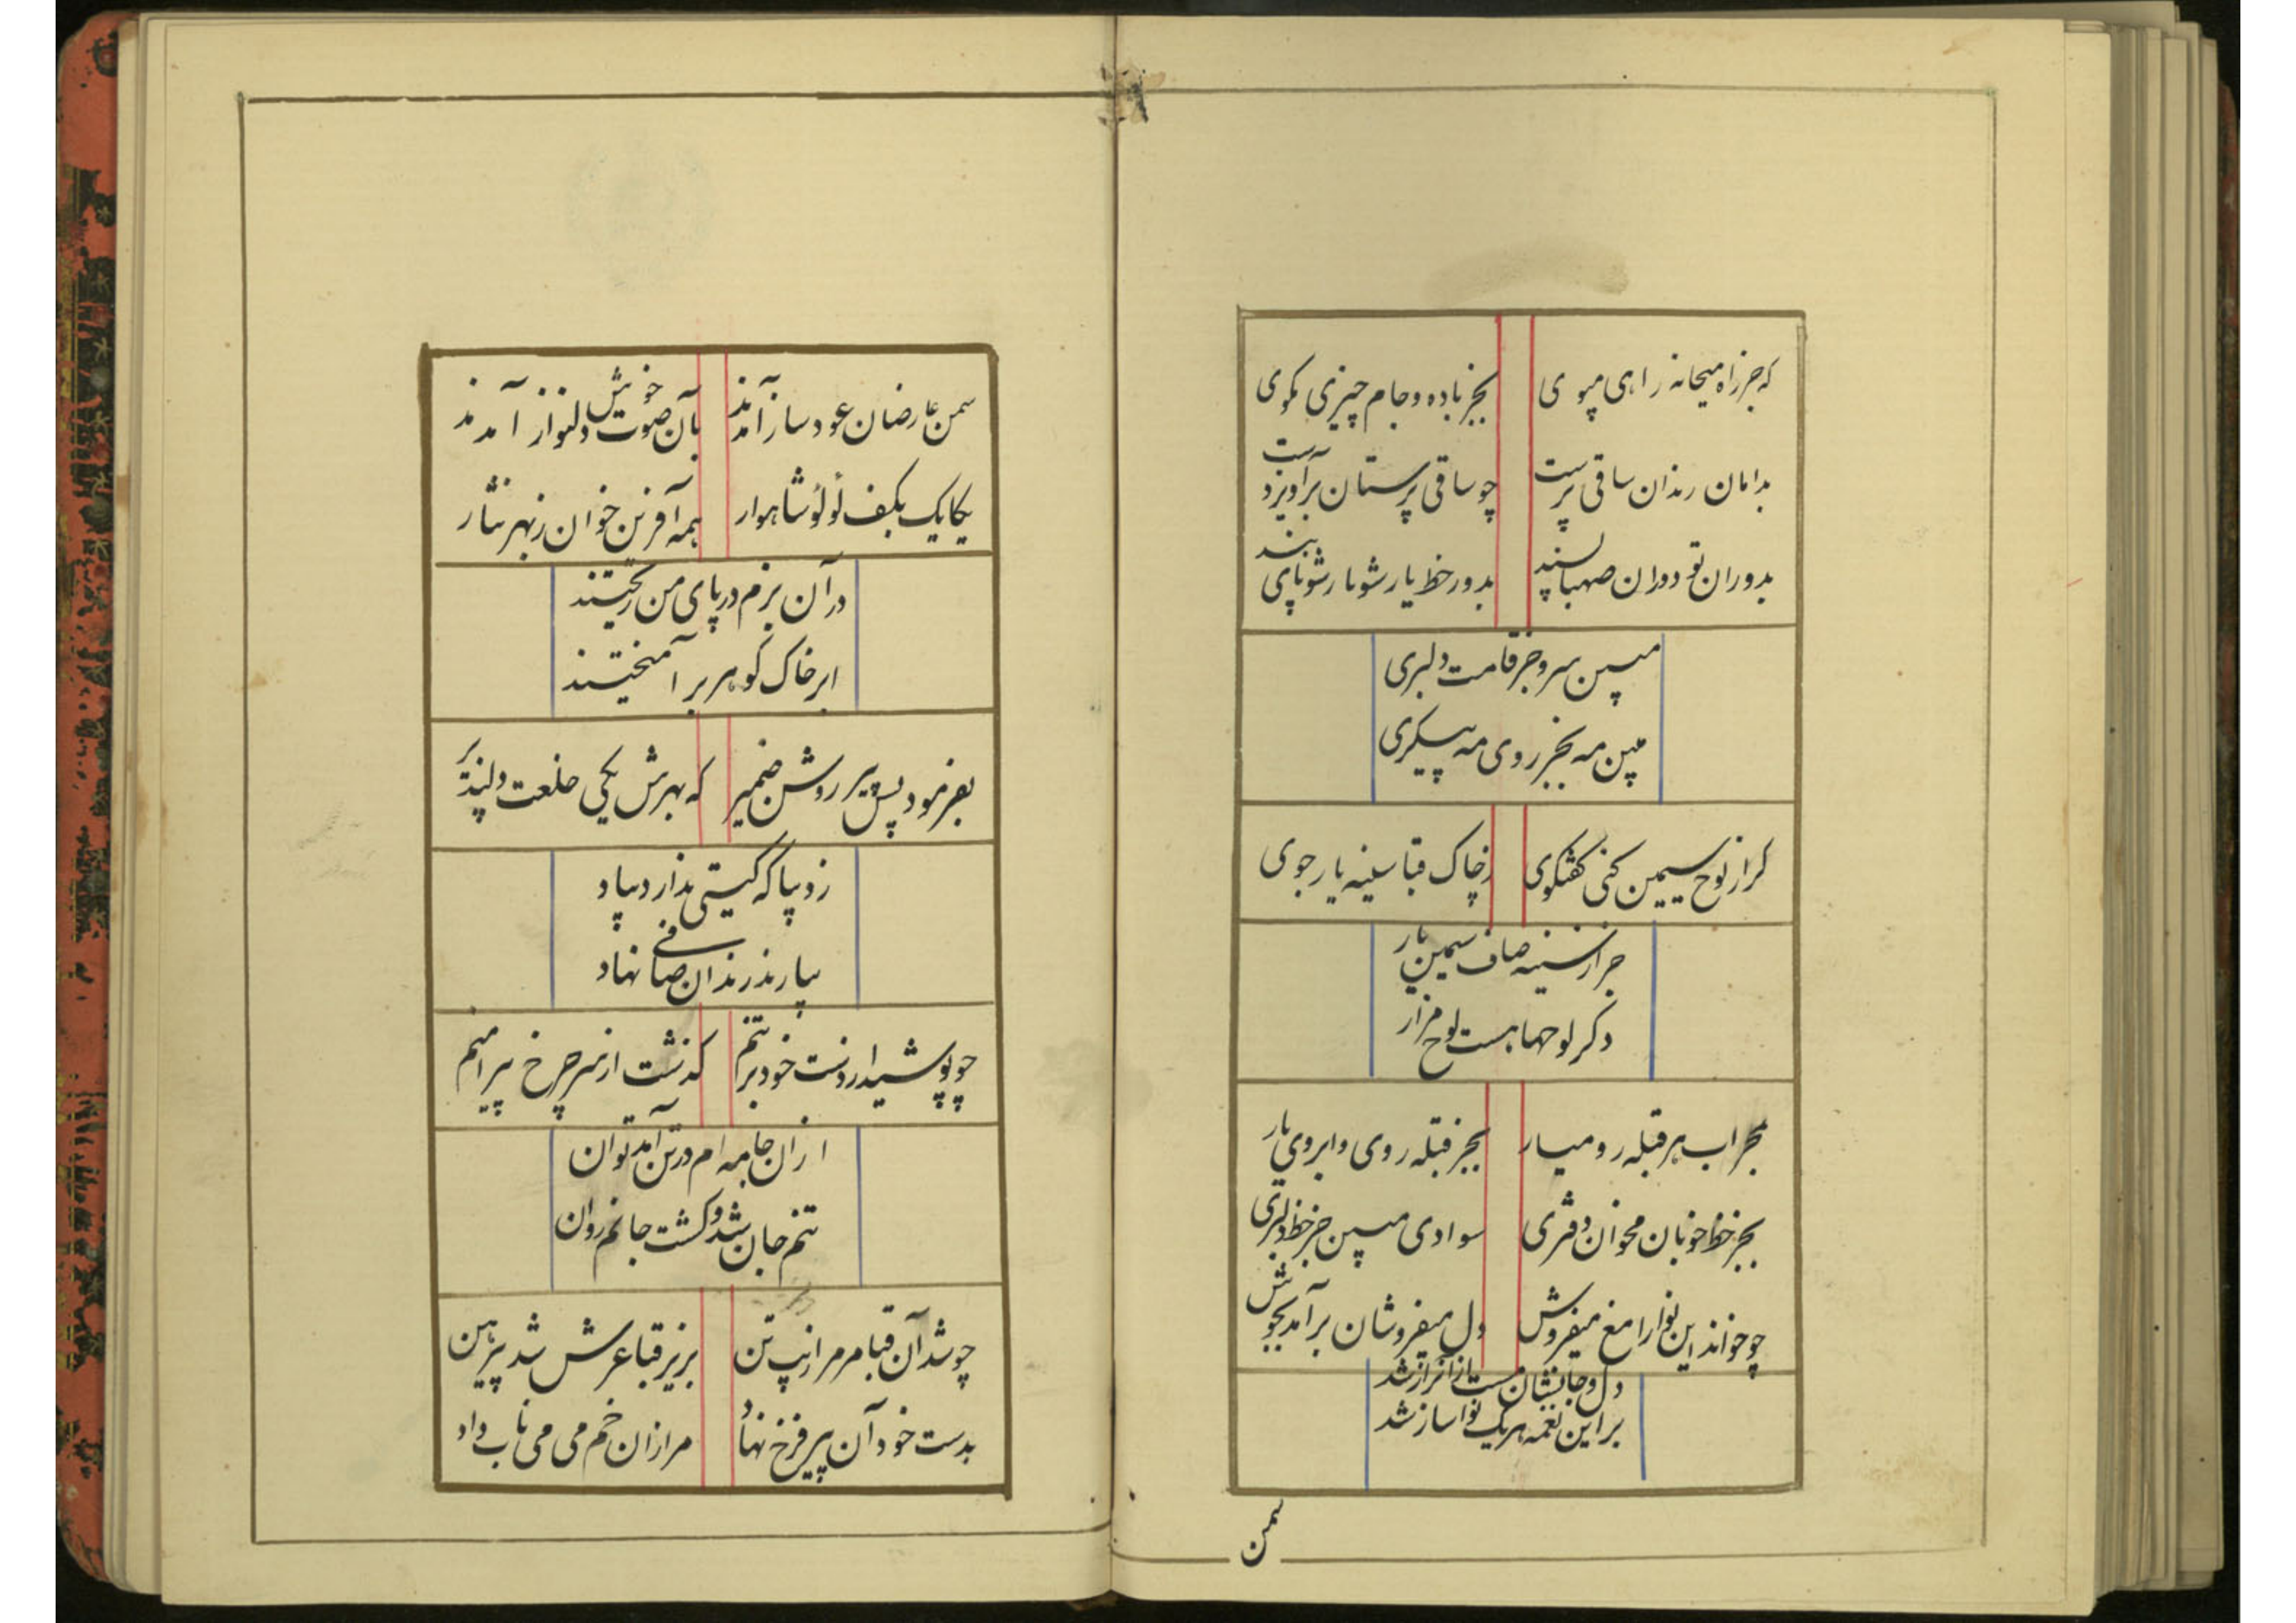 که جز راه میخانه راهی مپوی بجز باده و جام چیزی مگوی
بدامان رندان ساقی پرست چو ساقی پرستان برآویز دست
بدوران تو دوران صهبا پسند بدور خط یار شو پای بند
مبین سرو جز قامت دلبری
مبین مه بجز روی مه پیکری
کر از لوح سیمین کنی کفتکوی ز چاک قبا سینه یار جوی
جز از سینه صاف سیمین یار
دکر لوحها هست لوح مزار
بمحراب هر قبله رو میار بجز قبله روی و ابروی یار
بجز خط خوبان مخوان دفتری سوادی مبین جز خط دلبری
چو خواند این نوا را مغ میفروش دل میفروشان برآمد بجوش
دل و جانشان مست از آن راز شد
بر این نغمه هر یک نوا ساز شد
سمن
سمن عارضان عود ساز آمدند بآن صوت خویش دلنواز آمدند
یکایک بکف لؤلؤ شاهوار همه آفرین خوان ز بهر نثار
در آن بزم در پای من ریختند
ابر خاک کوهر برآمیختند
بفرمود پس پیر روشن ضمیر که بهرش یکی خلعت دلپذیر
ز دیبا که کیتی ندارد بیاد
بیارند رندان صافی نهاد
چو پوشید از دست خود بر تنم کذشت از سر چرخ پیرامنم
از آن جامه ام در تن آمد توان
تنم جان شد و کشت جانم روان
چو شد آن قبا مر مرا زیب تن بزیر قبا عرش شد پیرهن
بدست خود آن پیر فرخ نهاد مرا زان خم می می ناب داد